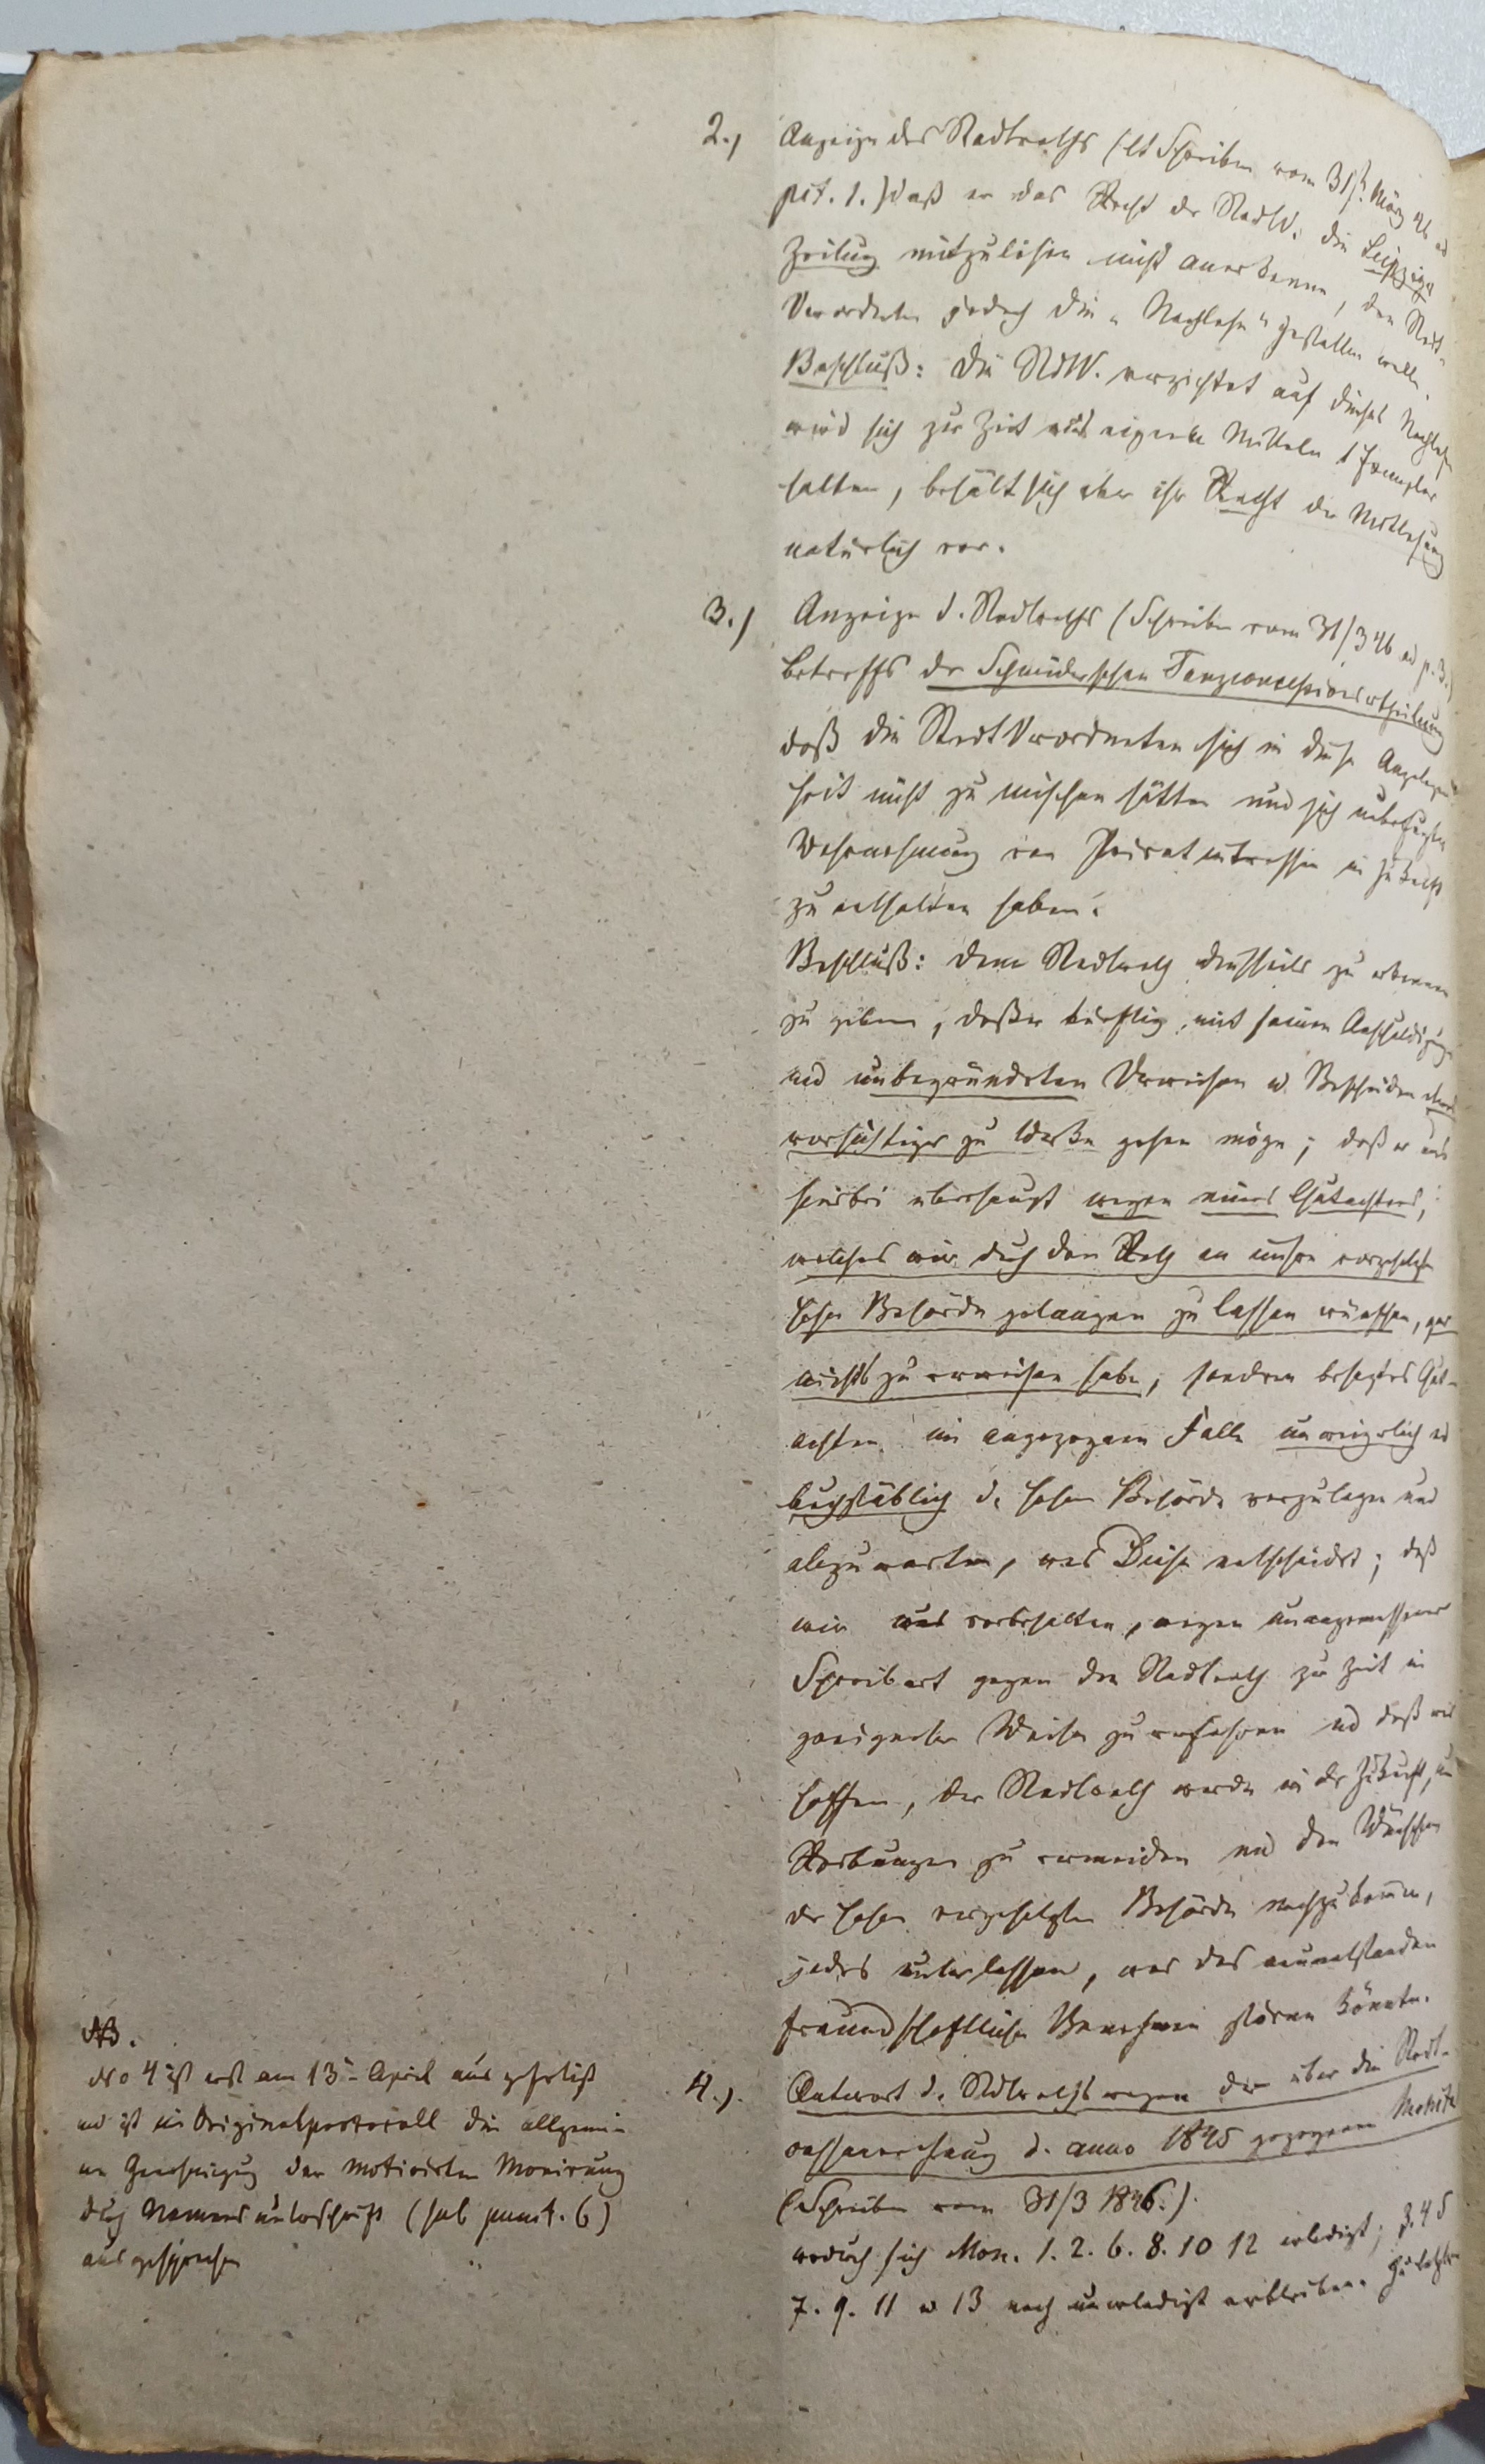 2.) Anzeige des Stadtraths (lt Schreiben vom 31st. März 46 ad
pct. 1.) daß er das Recht der StadtV. die Leipziger
Zeitung mitzulesen nicht anerkenne, den Stadt-
Verordneten jedoch die „Nachlese“ gestatten wolle.
Beschluß: Die StdtV. verzichtet auf dieses Nachlesen
wird sich zur Zeit aus eigenen Mitteln 1 Exemplar
halten, behält sich aber ihr Recht der Mitlesung
natürlich vor.
3.) Anzeige d. Stadtraths (Schreiben vom 31/3 46 ad p. 3.)
betreffs der Schneiderschen Tanzconcessionsertheilung
daß die StadtVerordneten sich in diese Angelegen-
heit nicht zu mischen hätten und sich unbefugter
Wahrnehmung von Privatinteressen in Zukunft
zu enthalten haben.
Beschluß: dem Stadtrath diesseits zu erkennen
zu geben, daß er künftig mit seinen Anschuldigungen
und unbegründeten Verweisen u. Bescheiden etwas
vorsichtiger zu Werke gehen möge; daß er uns
hierbei überhaupt wegen eines Gutachtens,
welches wir durch den Rath an unsre vorgesetzte
hohe Behörde gelangen zu lassen wünschen, gar
nichts zu verweisen habe, sondern besagtes Gut-
achten im angezogenen Falle unweigerlich und
buchstäblich d. hohen Behörde vorzulegen und
abzuwarten, was Diese entscheidet; daß
wir uns vorbehalten, wegen unangemessener
Schreibart gegen den Stadtrath zur Zeit in
geeigneter Weise zu verfahren und daß wir
hoffen, der Stadtrath werde in der Zukunft, um
Reibungen zu vermeiden und den Wünschen
der hohen vorgesetzten Behörde nachzukommen,
jedes unterlassen, was das
freundschaftliche Benehmen stören könnte.
4.) Antwort d. Stdtraths wegen der über die Stadt-
cassenrechnung d. anno 1845 gezogenen Monita
(Schreiben vom 31/3 1846.)
wodurch sich Mon. 1. 2. 6. 8. 10 12 erledigt; 3. 4 5
7. 9. 11 u 13 noch unerledigt verbleiben. Zu letztern
NB.
No 4 ist erst am 13n April ausgefertigt
und ist im Originalprotocoll die allgemei-
ne Genehmigung der motivirten Monirung
durch Namensunterschrift (sub punct. 6)
ausgesprochen